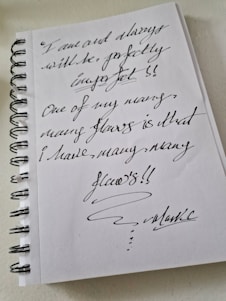 I am and always
will be perfectly
imperfect !!
One of my many,
many flaws is that
I have many many
flaws!!